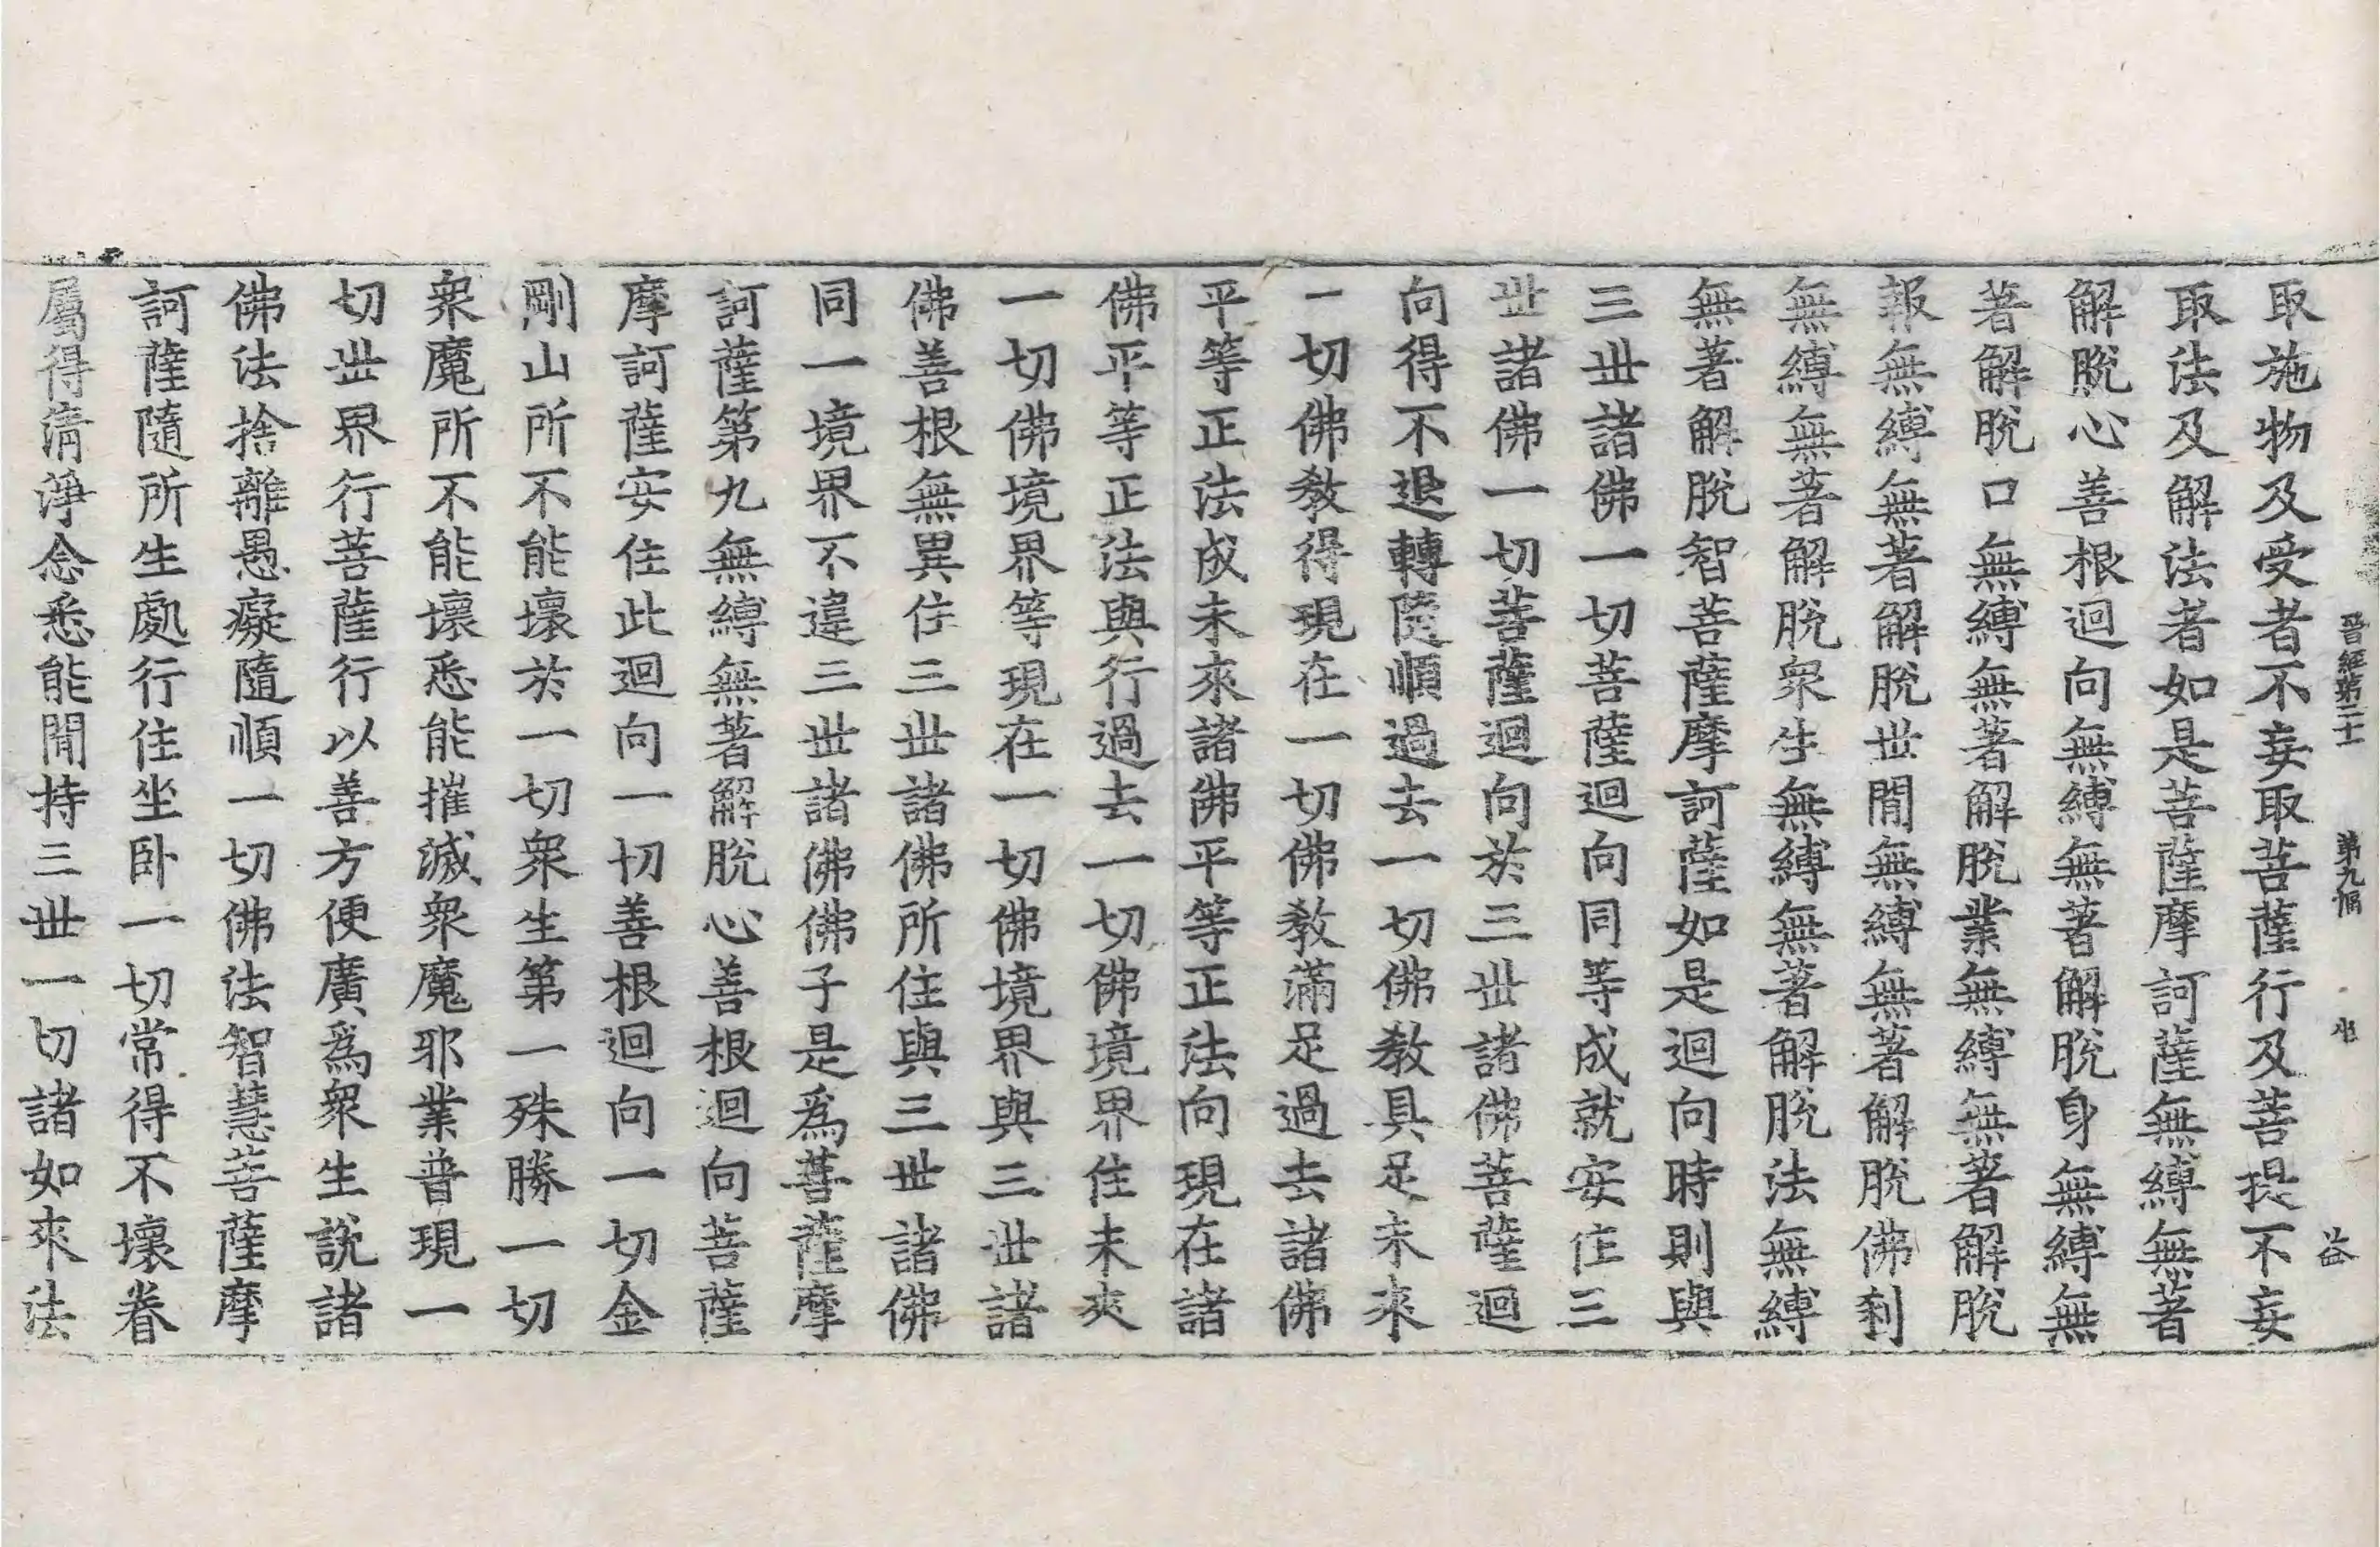 晉經第二十一　第九幅　生　益
取施物及受者不妄取菩薩行及菩提不妄
取法及解法者如是菩薩摩訶薩無縛無著
解脫心善根迴向無縛無著解脫身無縛無
著解脫口無縛無著解脫業無縛無著解脫
報無縛無著解脫世閒無縛無著解脫佛剎
無縛無著解脫衆生無縛無著解脫法無縛
無著解脫智菩薩摩訶薩如是迴向時則與
三世諸佛一切菩薩迴向同等成就安住三
世諸佛一切菩薩迴向於三世諸佛菩薩迴
向得不退轉隨順過去一切佛教具足未來
一切佛教得現在一切佛教滿足過去諸佛
平等正法成未來諸佛平等正法向現在諸
佛平等正法與行過去一切佛境界住未來
一切佛境界等現在一切佛境界與三世諸
佛善根無異住三世諸佛所住與三世諸佛
同一境界不違三世諸佛佛子是爲菩薩摩
訶薩第九無縛無著解脫心善根迴向菩薩
摩訶薩安住此迴向一切善根迴向一切金
剛山所不能壞於一切衆生第一殊勝一切
衆魔所不能壞悉能摧滅衆魔邪業普現一
切世界行菩薩行以善方便廣爲衆生說諸
佛法捨離愚癡隨順一切佛法智慧菩薩摩
訶薩隨所生處行住坐卧一切常得不壞眷
屬得淸淨念悉能聞持三世一切諸如來法